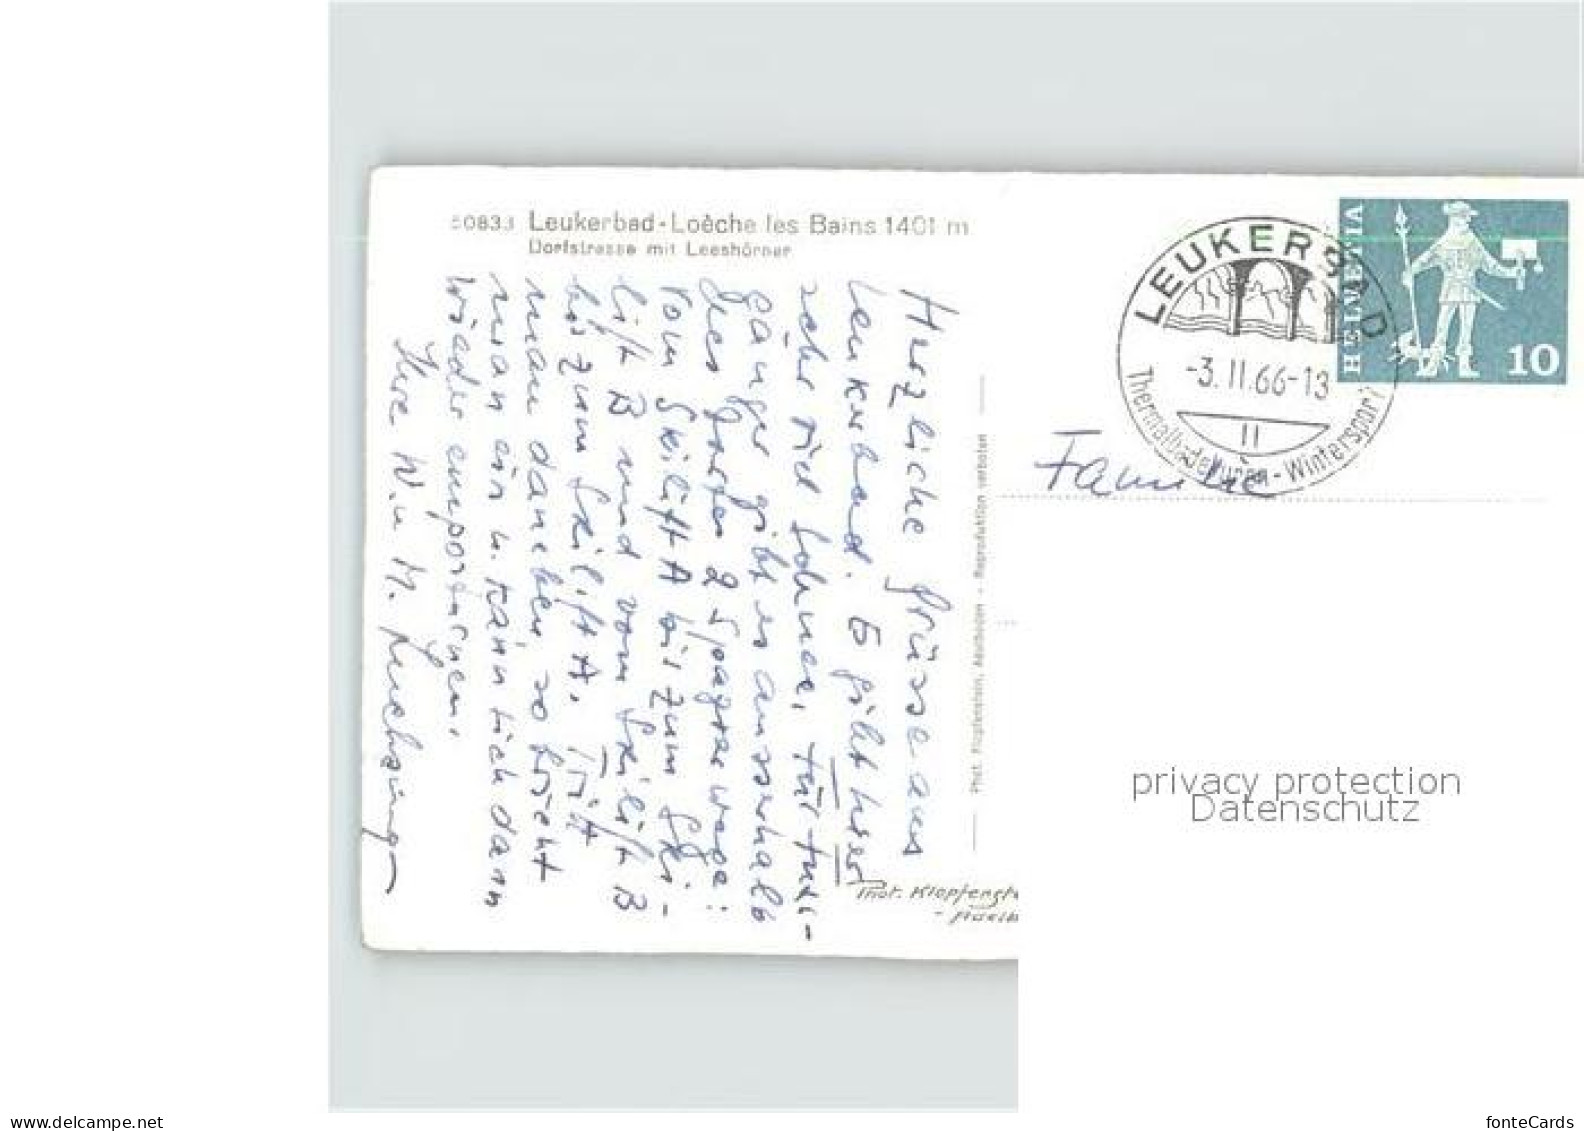 50833 Leukerbad-Loèche les Bains 1401 m
Dorfstrasse mit Leeshörner
Herzliche Grüsse aus
Leukerbad. Es gibt hier
sehr viel Schnee, für Fuss-
gänger gibt es ausserhalb
des Dorfes 2 Spazierwege:
vom Skilift A bis zum Ski-
lift B und vom Skilift B
bis zum Skilift A. Tritt
man daneben so bricht
man ein u. kann sich dann
wieder emporturnen.
Ihre W. u. M.
Phot. Klopfenstein, Adelboden - Reproduktion verboten
Phot. Klopfenst
- Adelb
LEUKERBAD
-3. II. 66-13
II
Thermalbadekuren - Wintersport
HELVETIA
10
Familie
privacy protection
Datenschutz
www.delcampe.net
fonteCards